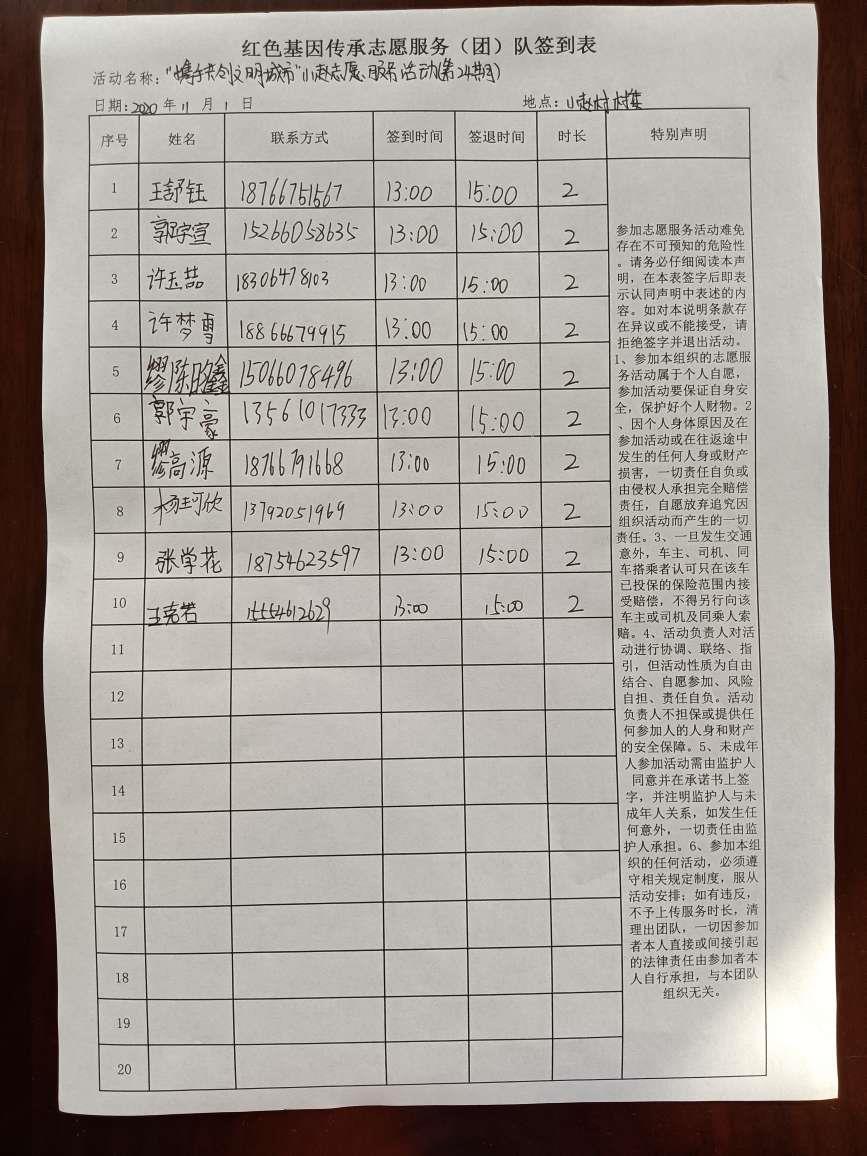 红色基因传承志愿服务（团）队签到表
活动名称："携手共创文明城市"小赵志愿服务活动(第24期)
日期：2020 年 11 月 1 日 地点：小赵村村委
序号 姓名 联系方式 签到时间 签退时间 时长 特别声明
1 王舒钰 18766751567 13:00 15:00 2
2 郭宇宣 15266058635 13:00 15:00 2
3 许玉喆 18306478103 13:00 15:00 2
4 许梦雪 18866679915 13:00 15:00 2
5 缪陈映鑫 15066078496 13:00 15:00 2
6 郭宇豪 13561017333 13:00 15:00 2
7 缪高源 18766791668 13:00 15:00 2
8 杨珂欣 13792051969 13:00 15:00 2
9 张学花 18754623597 13:00 15:00 2
10 王嘉若 15554612629 13:00 15:00 2
11
12
13
14
15
16
17
18
19
20
参加志愿服务活动难免
存在不可预知的危险性
。请务必仔细阅读本声
明，在本表签字后即表
示认同声明中表述的内
容。如对本说明条款存
在异议或不能接受，请
拒绝签字并退出活动。
1、参加本组织的志愿服
务活动属于个人自愿，
参加活动要保证自身安
全，保护好个人财物。2
、因个人身体原因及在
参加活动或在往返途中
发生的任何人身或财产
损害，一切责任自负或
由侵权人承担完全赔偿
责任，自愿放弃追究因
组织活动而产生的一切
责任。3、一旦发生交通
意外，车主、司机、同
车搭乘者认可只在该车
已投保的保险范围内接
受赔偿，不得另行向该
车主或司机及同乘人索
赔。4、活动负责人对活
动进行协调、联络、指
引，但活动性质为自由
结合、自愿参加、风险
自担、责任自负。活动
负责人不担保或提供任
何参加人的人身和财产
的安全保障。5、未成年
人参加活动需由监护人
同意并在承诺书上签
字，并注明监护人与未
成年人关系，如发生任
何意外，一切责任由监
护人承担。6、参加本组
织的任何活动，必须遵
守相关规定制度，服从
活动安排；如有违反，
不予上传服务时长，清
理出团队，一切因参加
者本人直接或间接引起
的法律责任由参加者本
人自行承担，与本团队
组织无关。